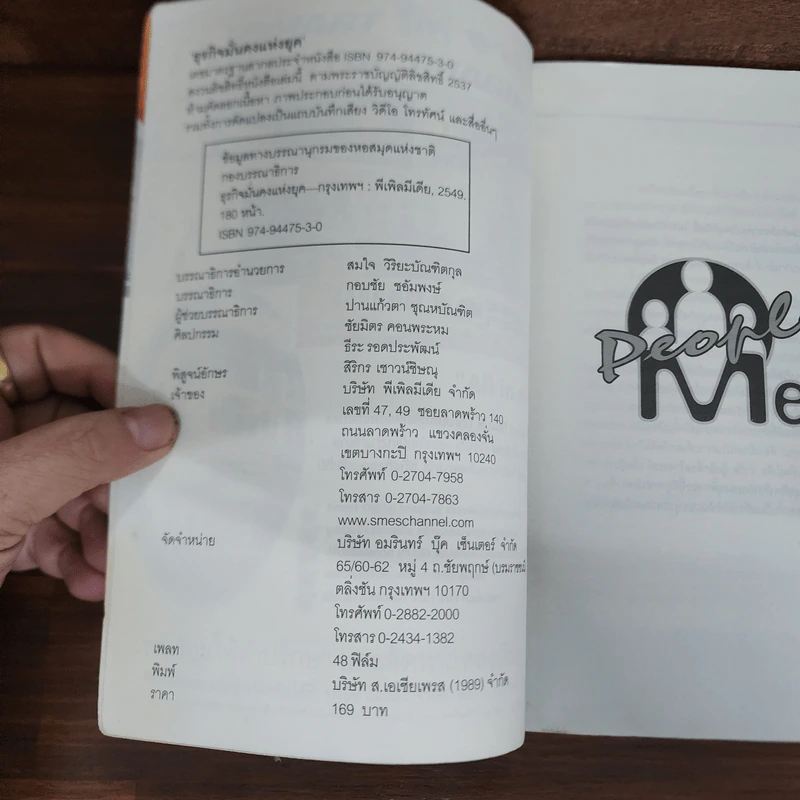 "ธุรกิจมั่นคงแห่งยุค"
เลขมาตรฐานสากลประจำหนังสือ ISBN 974-94475-3-0
สงวนลิขสิทธิ์หนังสือเล่มนี้ ตามพระราชบัญญัติลิขสิทธิ์ 2537
ห้ามคัดลอกเนื้อหา ภาพประกอบก่อนได้รับอนุญาต
รวมทั้งการดัดแปลงเป็นแถบบันทึกเสียง วิดีโอ โทรทัศน์ และสื่ออื่นๆ
ข้อมูลทางบรรณานุกรมของหอสมุดแห่งชาติ
กองบรรณาธิการ
ธุรกิจมั่นคงแห่งยุค—กรุงเทพฯ : พีเพิลมีเดีย, 2549.
180 หน้า.
ISBN 974-94475-3-0
บรรณาธิการอำนวยการ สมใจ วิริยะบัณฑิตกุล
บรรณาธิการ กอบชัย ชอัมพงษ์
ผู้ช่วยบรรณาธิการ ปานแก้วตา ชุณหบัณฑิต
ศิลปกรรม ชัยมิตร คอนพระหม
ธีระ รอดประพัฒน์
พิสูจน์อักษร สิริกร เชาวน์ชิษณุ
เจ้าของ บริษัท พีเพิลมีเดีย จำกัด
เลขที่ 47, 49 ซอยลาดพร้าว 140
ถนนลาดพร้าว แขวงคลองจั่น
เขตบางกะปิ กรุงเทพฯ 10240
โทรศัพท์ 0-2704-7958
โทรสาร 0-2704-7863
www.smeschannel.com
จัดจำหน่าย บริษัท อมรินทร์ บุ๊ค เซ็นเตอร์ จำกัด
65/60-62 หมู่ 4 ถ.ชัยพฤกษ์ (บรมราชชนนี)
ตลิ่งชัน กรุงเทพฯ 10170
โทรศัพท์ 0-2882-2000
โทรสาร 0-2434-1382
เพลท 48 ฟิล์ม
พิมพ์ บริษัท ส.เอเซียเพรส (1989) จำกัด
ราคา 169 บาท
People
Me